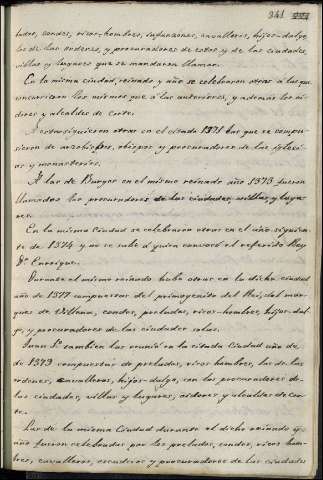 341
lados, condes, ricos-hombres, infanzones, cavalleros, hijos-dalgo,
los de las ordenes, y procuradores de estos y de las ciudades,
villas y lugares que se mandaron llamar.
En la misma ciudad, reinado y año se celebraron otras a las que
concurrieron los mismos que á las anteriores, y ademas los oi-
dores y alcaldes de Corte.
A estas siguieron otras en el citado 1371 las que se compu-
sieron de arzobispos, obispos y procuradores de las Iglesi-
as y monasterios.
A las de Burgos en el mismo reinado año 1373 fueron
llamados los procuradores de las ciudades, villas, y luga-
res.
En la misma Ciudad se celebraron otras en el año siguien-
te de 1374 y no se sabe á quien convocó el referido Rey
Dn. Enrrique.
Durante el mismo reinado hubo otras en la dicha ciudad
año de 1377 compuestas del primogenito del Rei, del mar-
ques de Villena, condes, preludos, ricos-hombres, hijos-dal-
go, y procuradores de las ciudades solas.
Juan 1º tambien las reunió en la citada Ciudad año de,
de 1379 compuestas de preludos, ricos hombres, los de las
ordenes, cavalleros, hijos-dalgo, con los procuradores de
las ciudades, villas y lugares, oidores y alcaldes de Cor-
te.
Las de la misma Ciudad durante el dicho reinado y
año fueron celebradas por los preludos, condes, ricos hom-
bres, cavalleros, escudèros y procuradores de las ciudades